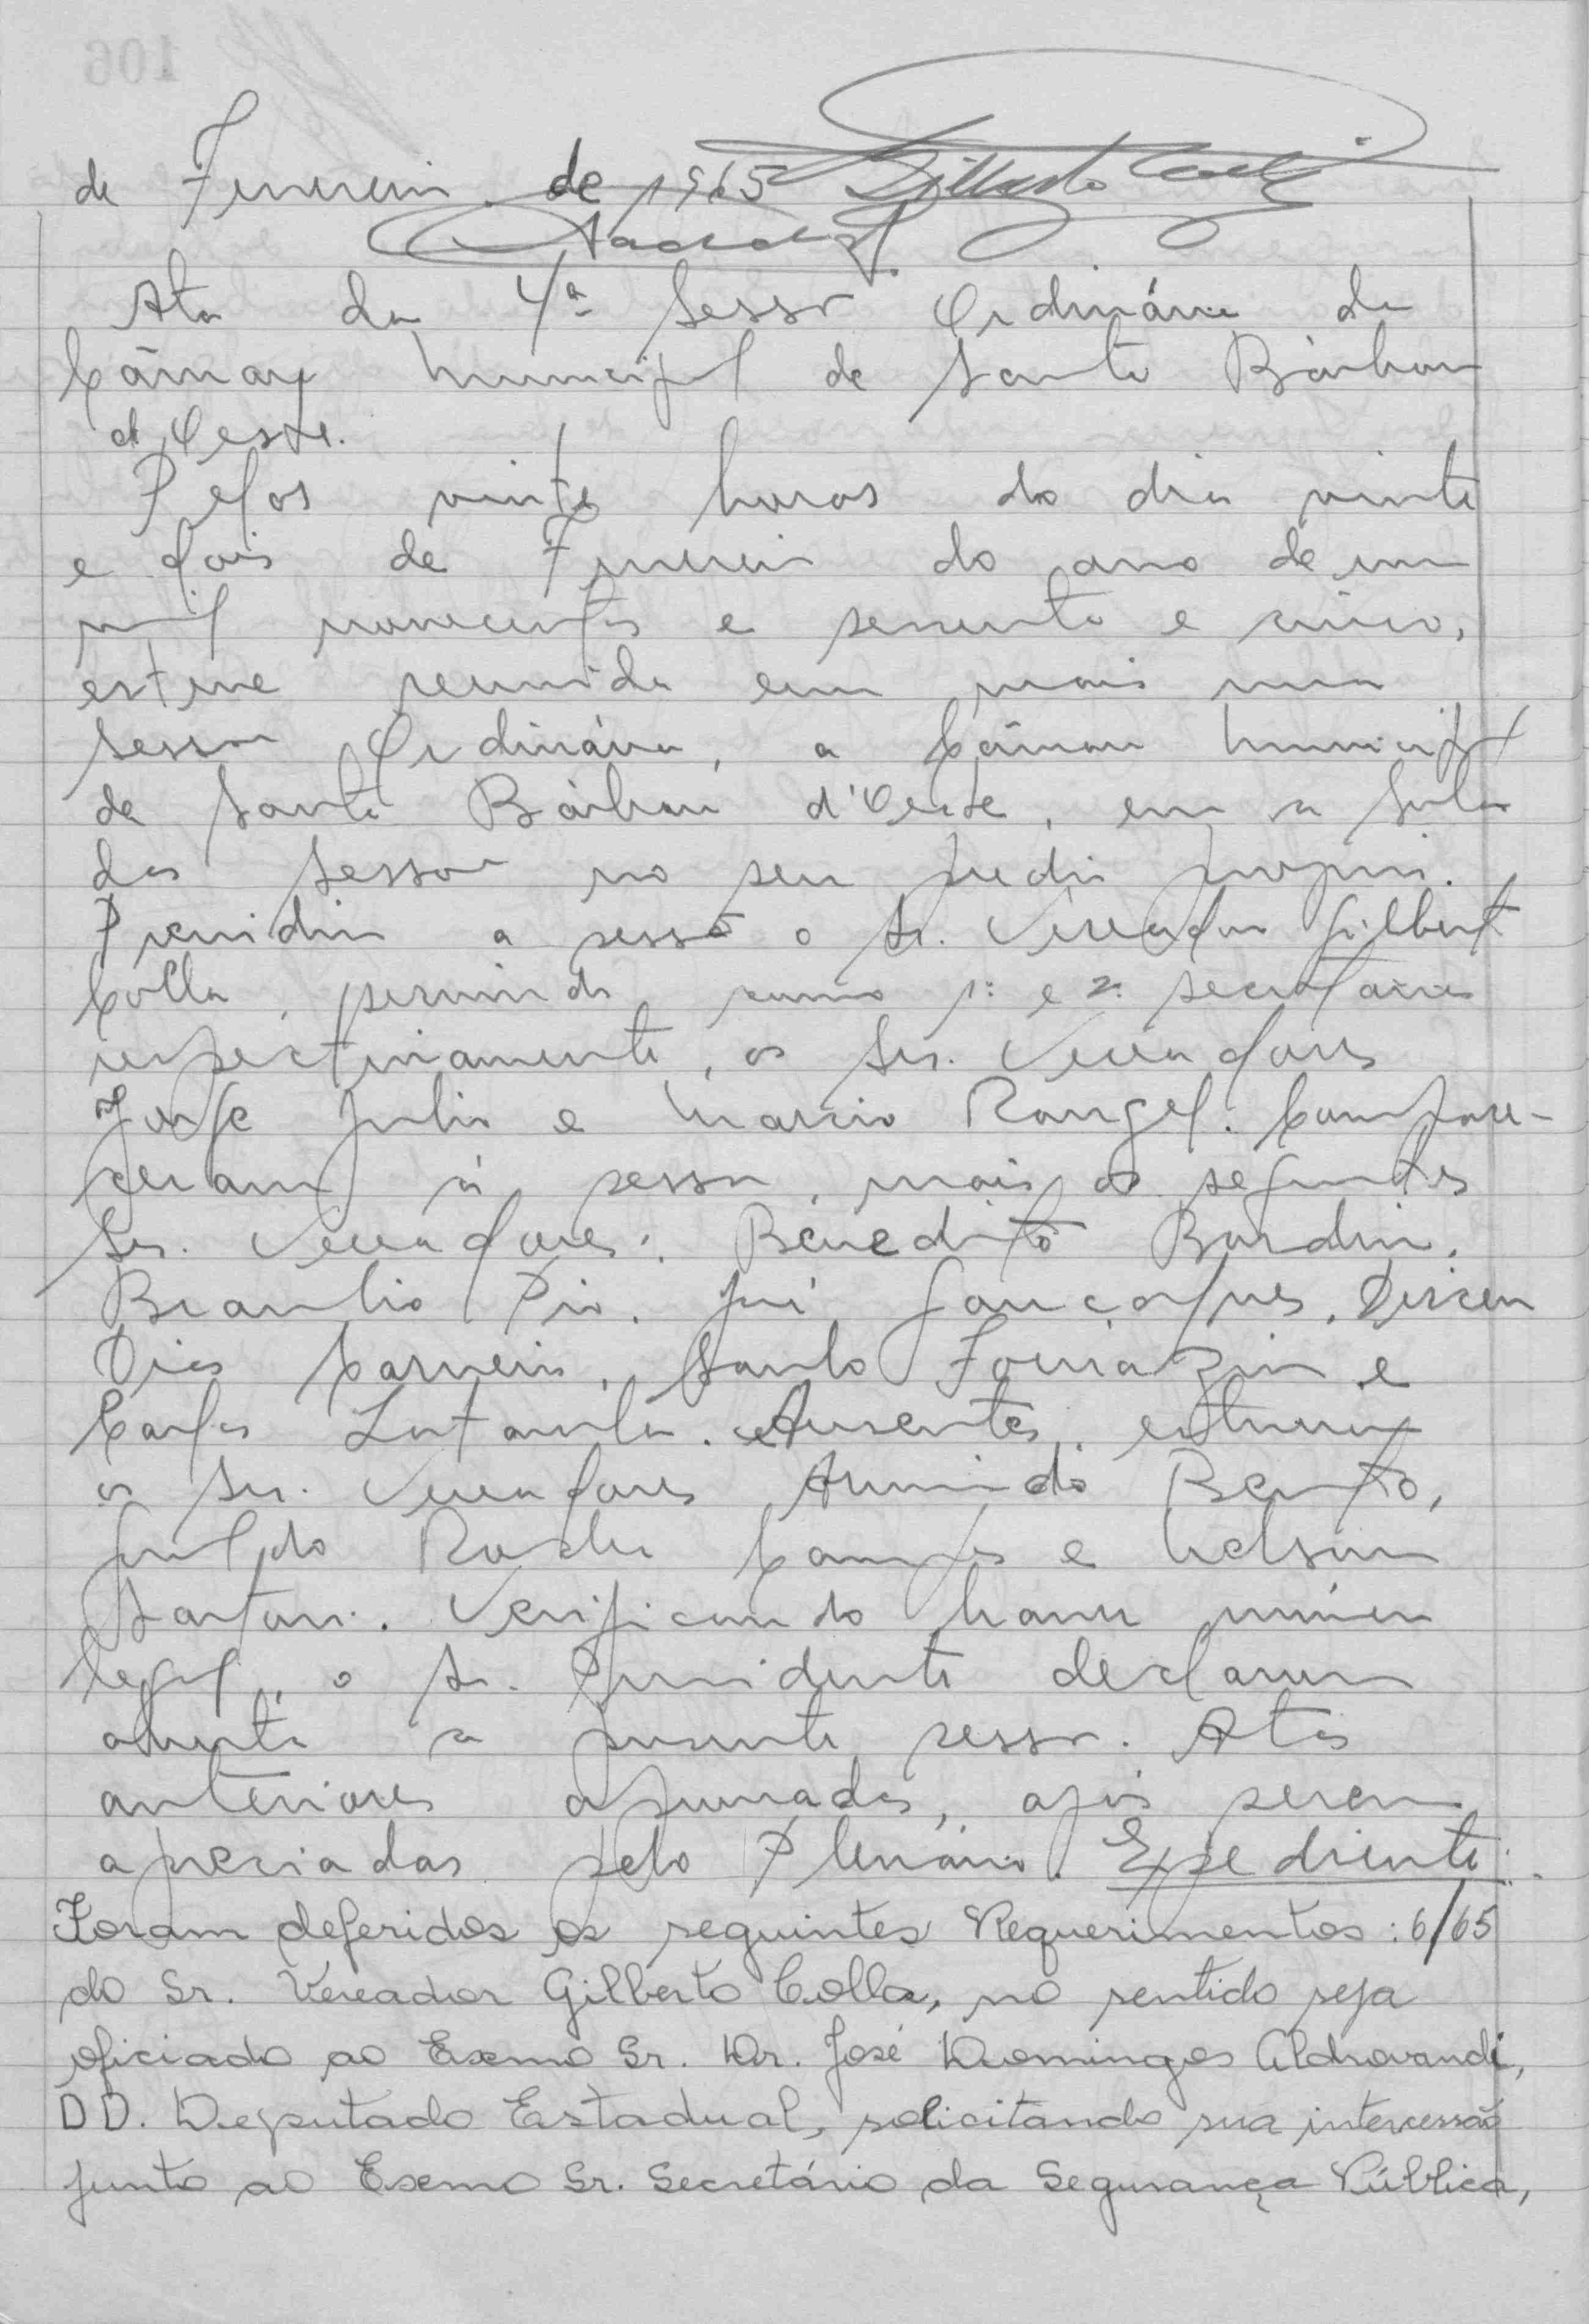 de Fevereiro de 1965 Gilberto Colla
Ata da 4ª Sessão Ordinária da
Câmara Municipal de Santa Bárbara
d'Oeste.
Pelas vinte horas do dia vinte
e dois de Fevereiro do ano de um
mil novecentos e sessenta e cinco,
esteve reunida em mais uma
sessão Ordinária, a Câmara Municipal
de Santa Bárbara d'Oeste, em a sala
das sessões no seu predio proprio.
Presidiu a sessão o Sr. Vereador Gilberto
Colla, servindo como 1º e 2º secretarios
respectivamente, os Srs. Vereadores
Jorge Julio e Marcio Rangel. Compare-
ceram à sessão, mais os seguintes
Srs. Vereadores: Benedito Bordin,
Braulio Pio, José Gonçalves, Dirceu
Dias Carneiro, Santo Forrazin e
Carlos Lotando. Ausentes, estiveram
os Srs. Vereadores Armindo Bento,
Geraldo Rocha Campos e Nelson
Sartori. Verificando haver número
legal, o Sr. Presidente declarou
aberta a presente sessão. Atas
anteriores aprovadas, após serem
apreciadas pelo Plenário. Expediente:
Foram deferidos os seguintes Requerimentos: 6/65
do Sr. Vereador Gilberto Colla, no sentido seja
oficiado ao Exmo Sr. Dr. José Domingos Aldrovandi,
DD. Deputado Estadual, solicitando sua intercessão
junto ao Exmo Sr. Secretário da Segurança Pública,